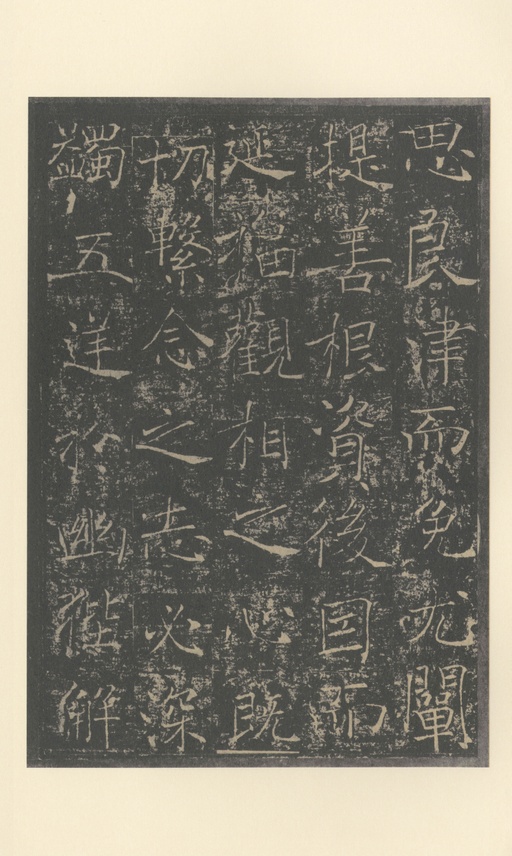 思良津而免尤闡
提善根資後因而
觀相之心既
切繫念之志必深
蠲五逆於幽解